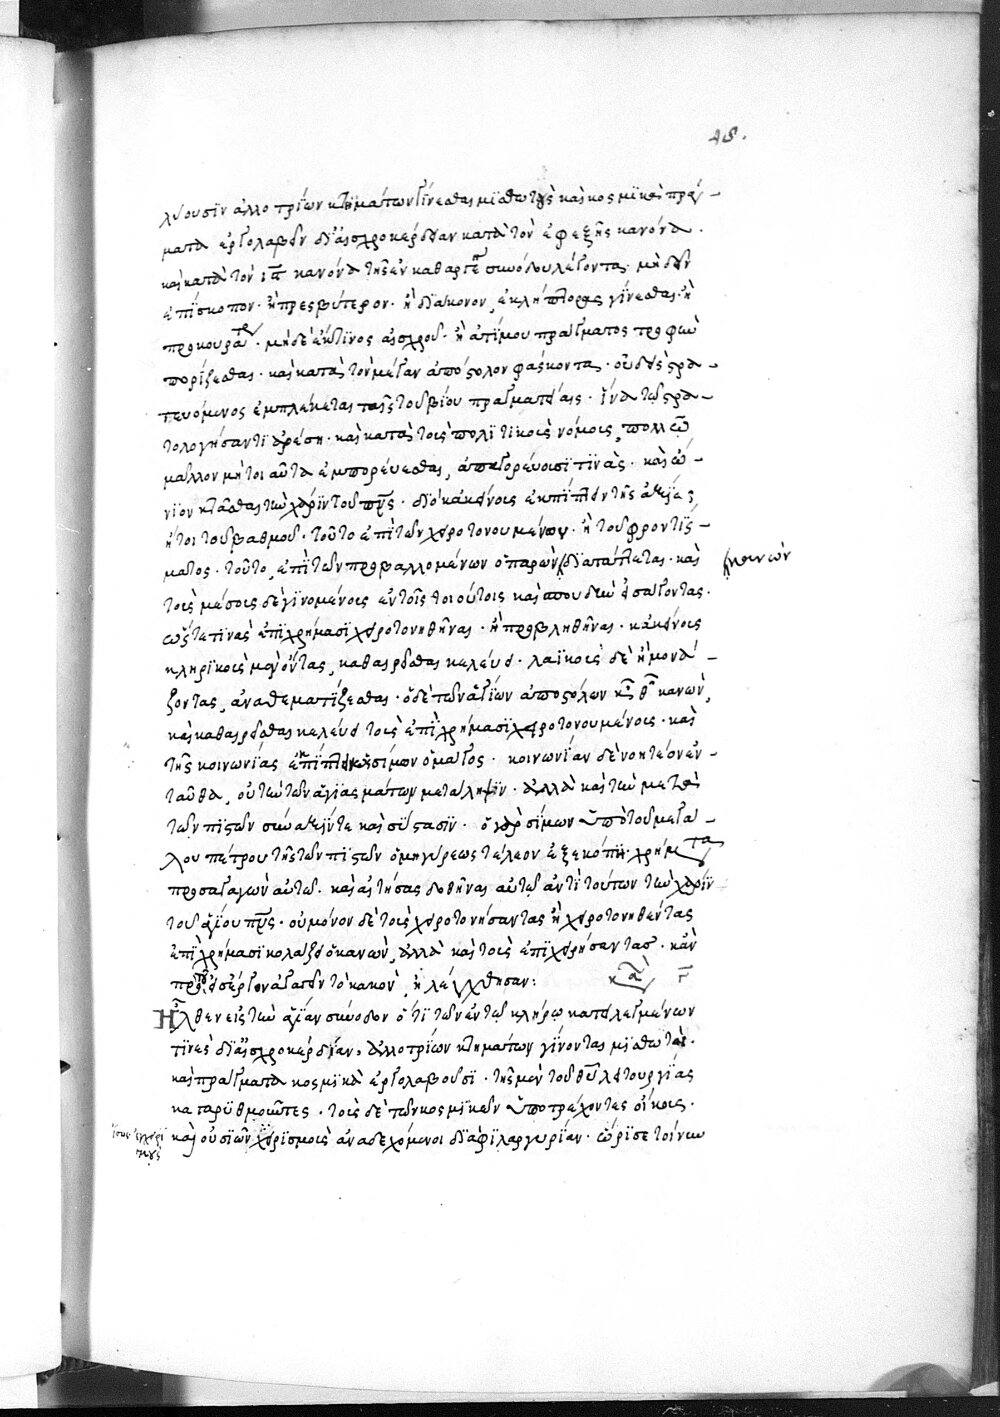 48.
λύουσϊν ἀλλοτρΐων κτημάτων γίνεσθαι μϊσθωτὰς καὶ κοσμϊκὰ πρά-
ματα ἐργολαβεῖν δι' αἰσχροκέρδειαν κατὰ τὸν ἐφεξῆς κανόνα.
καὶ κατὰ τὸν κανόνα τῆς ἐν καθαργένῃ συνόδου λέγοντα. μὴ δεῖν
ἐπίσκοπον. ἢ πρεσβύτερον. ἢ δϊάκονον, ἐκλήπτορας γίνεσθαι. ἢ
προκουράτ. μηδὲ ἐκ τϊνος αἰσχροῦ. ἢ ἀτίμου πράγματος τροφὴν
πορίζεσθαι. καὶ κατὰ τὸν μέγαν ἀπόστολον φάσκοντα. οὐδεὶς στρα-
τευόμενος ἐμπλέκεται ταῖς τοῦ βίου πραγματείαις. ἵνα τῷ στρα-
τολογήσαντϊ ἀρέσῃ. καὶ κατὰ τοὺς πολϊτϊκοὺς νόμους, πολλῷ
μᾶλλον μήτοι αὐτὰ ἐμπορεύεσθαι, ἀπαγορεύουσϊ τϊνὰς. καὶ ὤ-
νϊον κτᾶσθαι τὴν χάρϊν τοῦ πνς. διὸ κἀκείνοις ἐκπίπτειν τῆς ἀξίας,
ἤτοι τοῦ βαθμοῦ. τοῦτο ἐπὶ τῶν χειροτονουμένων. ἢ τοῦ φροντίσ-
ματος. τοῦτο, ἐπὶ τῶν προβαλλομένων ὁ παρὼν δϊαπάττεται. καὶ
κανὼν
τοὺς μέσους δὲ γϊνομένους ἐν τοῖς τοιούτοις καὶ σπουδὴν εἰσάγοντας.
ὥστε τινὰς ἐπὶ χρήμασϊ χειροτονηθῆναι. ἢ προβληθῆναι. κἀκείνους
κληρϊκοὺς μὲν ὄντας, καθαιρεῖσθαι κελεύει. λαϊκοὺς δὲ ἢ μονά-
ζοντας, ἀναθεματΐζεσθαι. ὁ δὲ τῶν ἁγΐων ἀποστόλων κθ κανὼν,
καὶ καθαιρεῖσθαι κελεύει τοὺς ἐπὶ χρήμασϊ χειροτονουμένους. καὶ
τῆς κοινωνίας ἐκπίπτειν ὡς σίμων ὁ μάγος. κοινωνΐαν δὲ νοητέον ἐν-
ταῦθα, οὐ τὴν τῶν ἁγιασμάτων μετάληψϊν. ἀλλὰ καὶ τὴν μετὰ
τῶν πϊστῶν συναυξήν τε καὶ σύστασϊν. ὁ γὰρ σίμων ὑπὸ τοῦ μεγά-
λου πέτρου τῆς τῶν πϊστῶν ὁμηγύρεως τέλεον ἐξεκόπη χρήματα
προσαγαγὼν αὐτῷ. καὶ αἰτήσας δοθῆναι αὐτῷ ἀντὶ τούτων τὴν χάρϊν
τοῦ ἁγίου πνς. οὐ μόνον δὲ τοὺς χειροτονήσαντας ἢ χειροτονηθέντας
ἐπὶ χρήμασϊ κολάζει ὁ κανὼν, ἀλλὰ καὶ τοὺς ἐπϊχειρήσαντας. κἂν
πρὸ τοῦ εἰς ἔργον ἀγαγεῖν τὸ κακὸν, ἠλέγχθησαν:
Ἦλθεν εἰς τὴν ἁγίαν σύνοδον ὅτϊ τῶν ἐν τῷ κλήρῳ κατειλεγμένων
τϊνὲς δι' αἰσχροκέρδειαν, ἀλλοτρίων κτημάτων γίνονται μϊσθωταὶ.
καὶ πράγματα κοσμϊκὰ ἐργολαβοῦσϊ. τῆς μὲν τοῦ θυ λειτουργίας
καταρῥϋθμοῦντες. τοὺς δὲ τῶν κοσμϊκῶν ὑποτρέχοντες οἴκους.
καὶ οὐσϊῶν χειρϊσμοὺς ἀναδεχόμενοι δϊὰ φϊλαργυρΐαν. ὥρϊσε τοίνυν